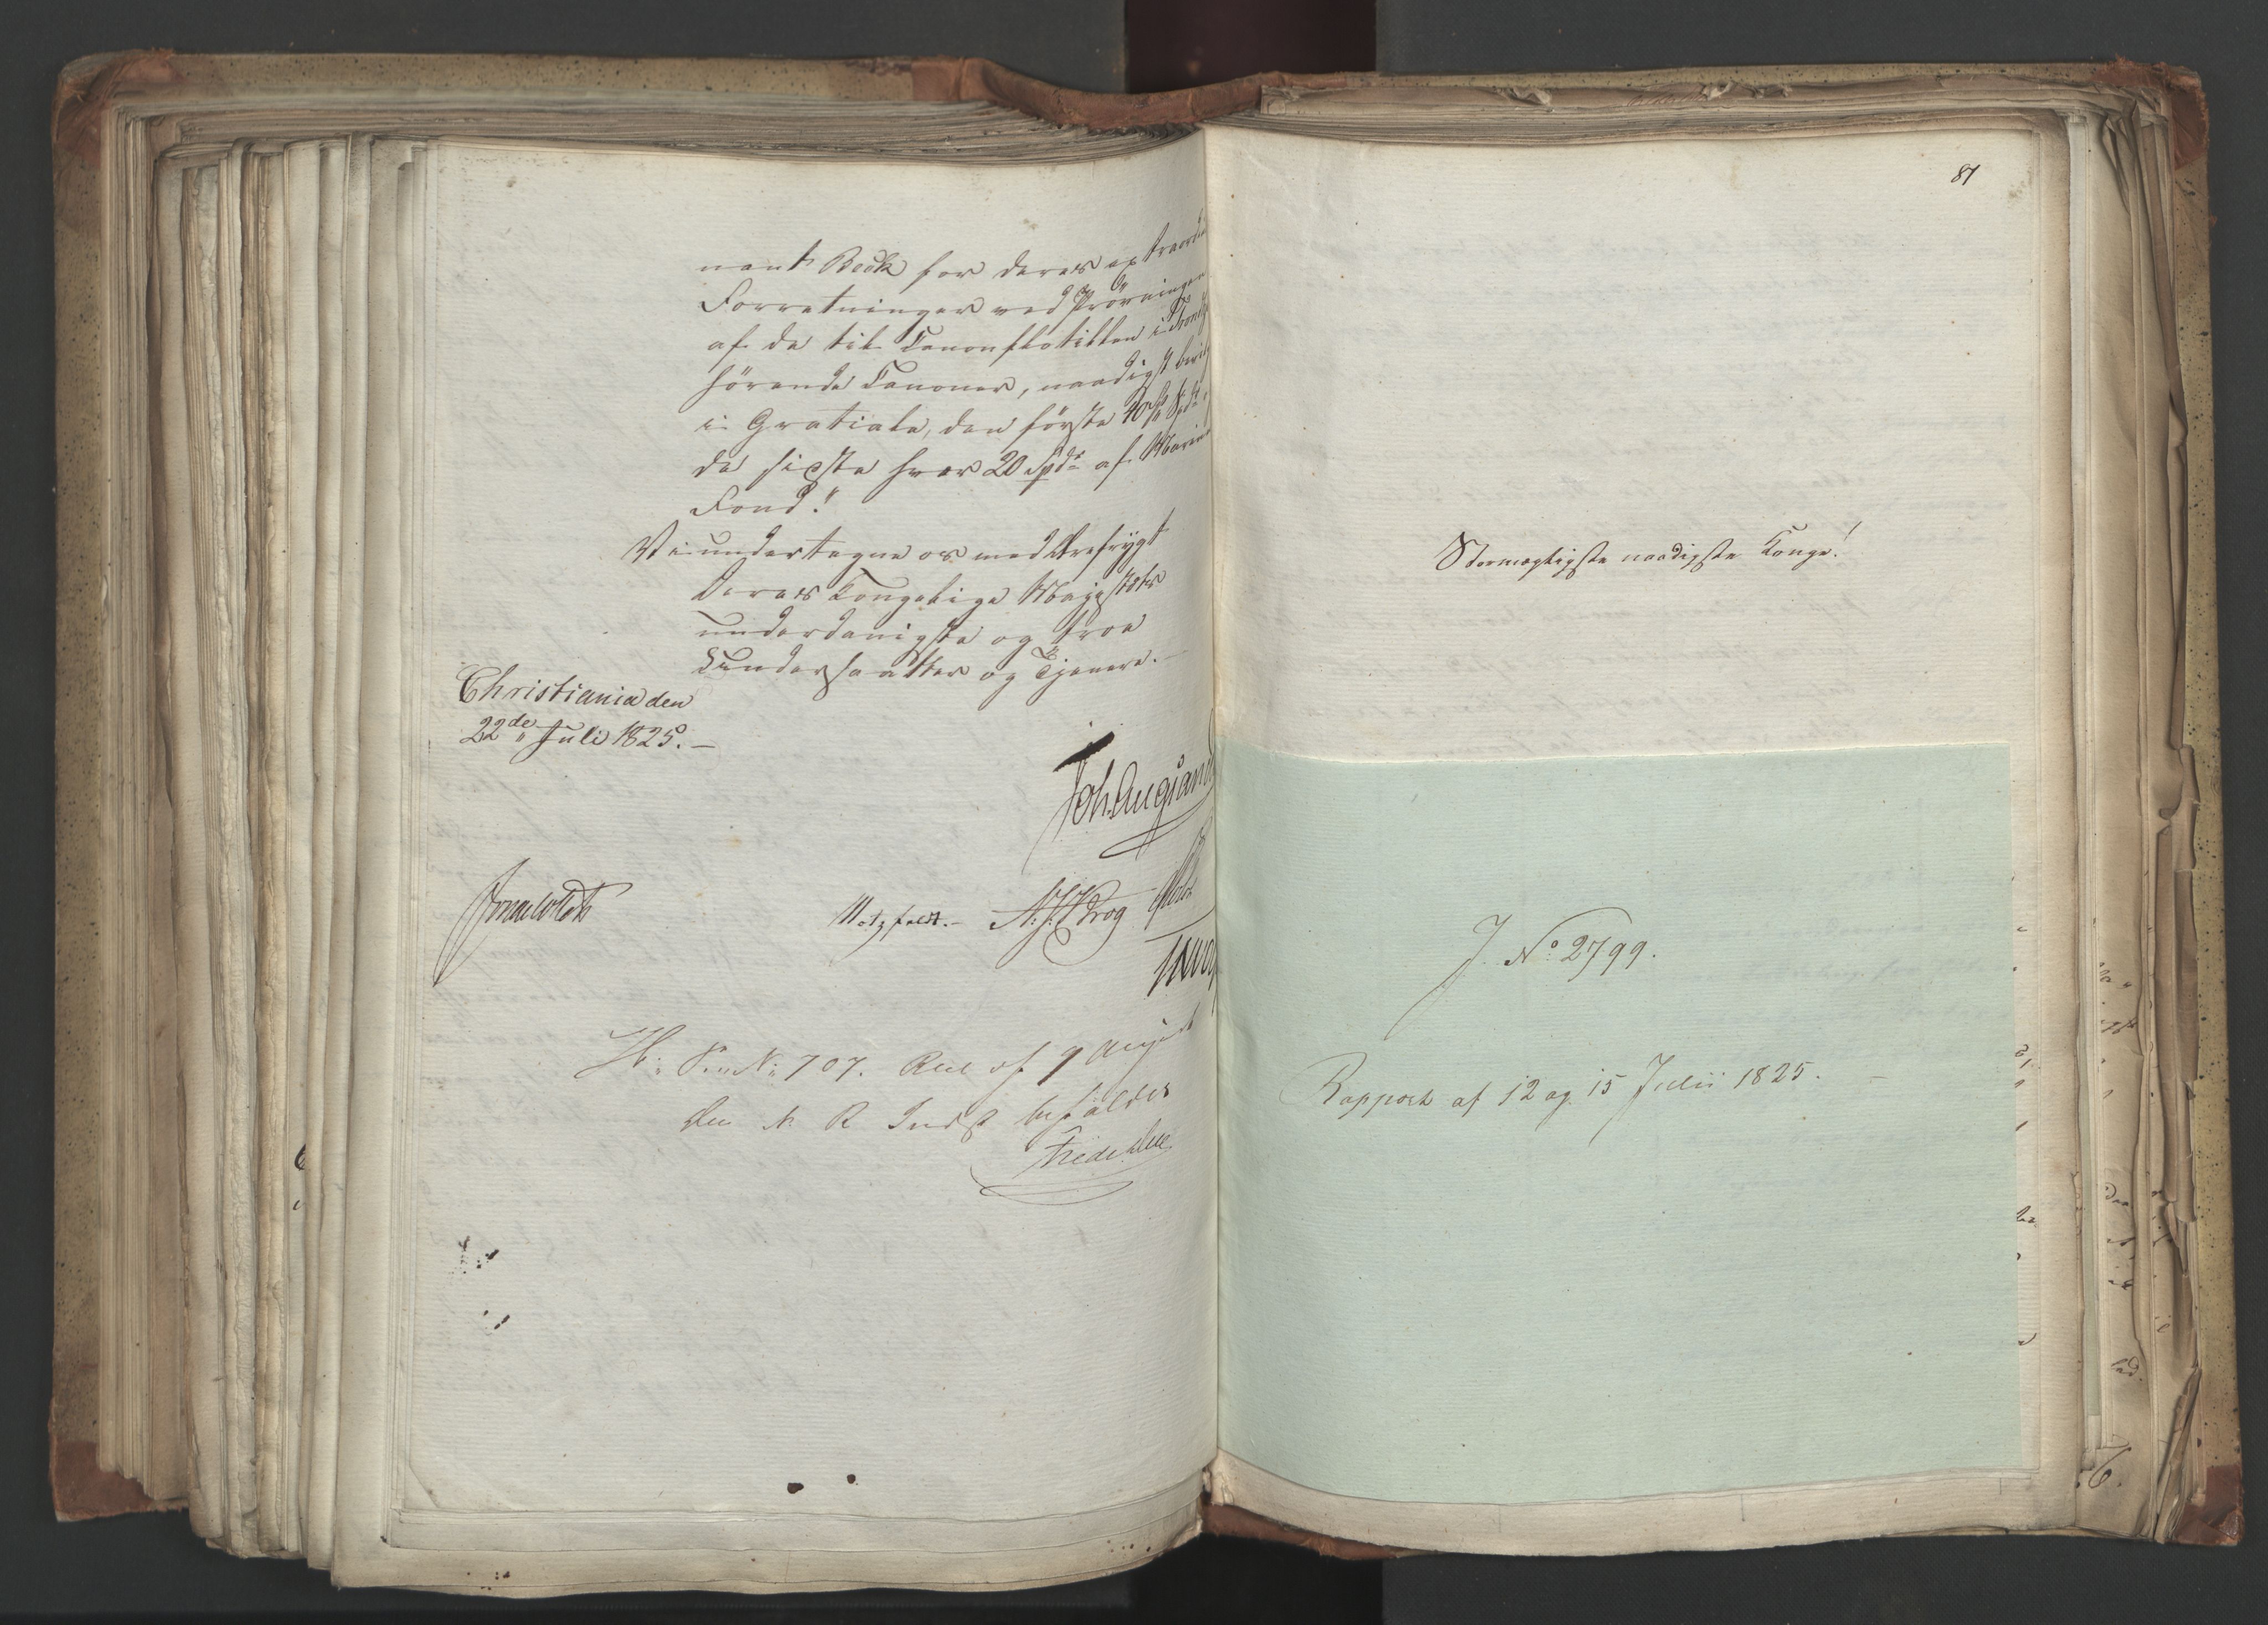 nant Beck for deres extraord
Forretninger ved Prövningen
af de til Canonflotillen i Trondh
hörende Canoner, naadigst bevil
i Gratiale, den förste 40 Spd
de sidste hver 20 Spdr af Marine
Fond."
Vi undertegne os med Ærefrygt
Deres Kongelige Majestæts
underdanigste og troe
Undersaatter og Tjenere. —
Christiania den
22de Juli 1825. —
Joh. Aug Sand
Motzfeldt. — N. J. Krog
H: P: No: 707. Res af 9 August
den N R Indst bifaldes
Fredr. Due
81
Stormægtigste naadigste Konge!
J. No: 2799.
Rapport af 12 og 15 Julii 1825. —